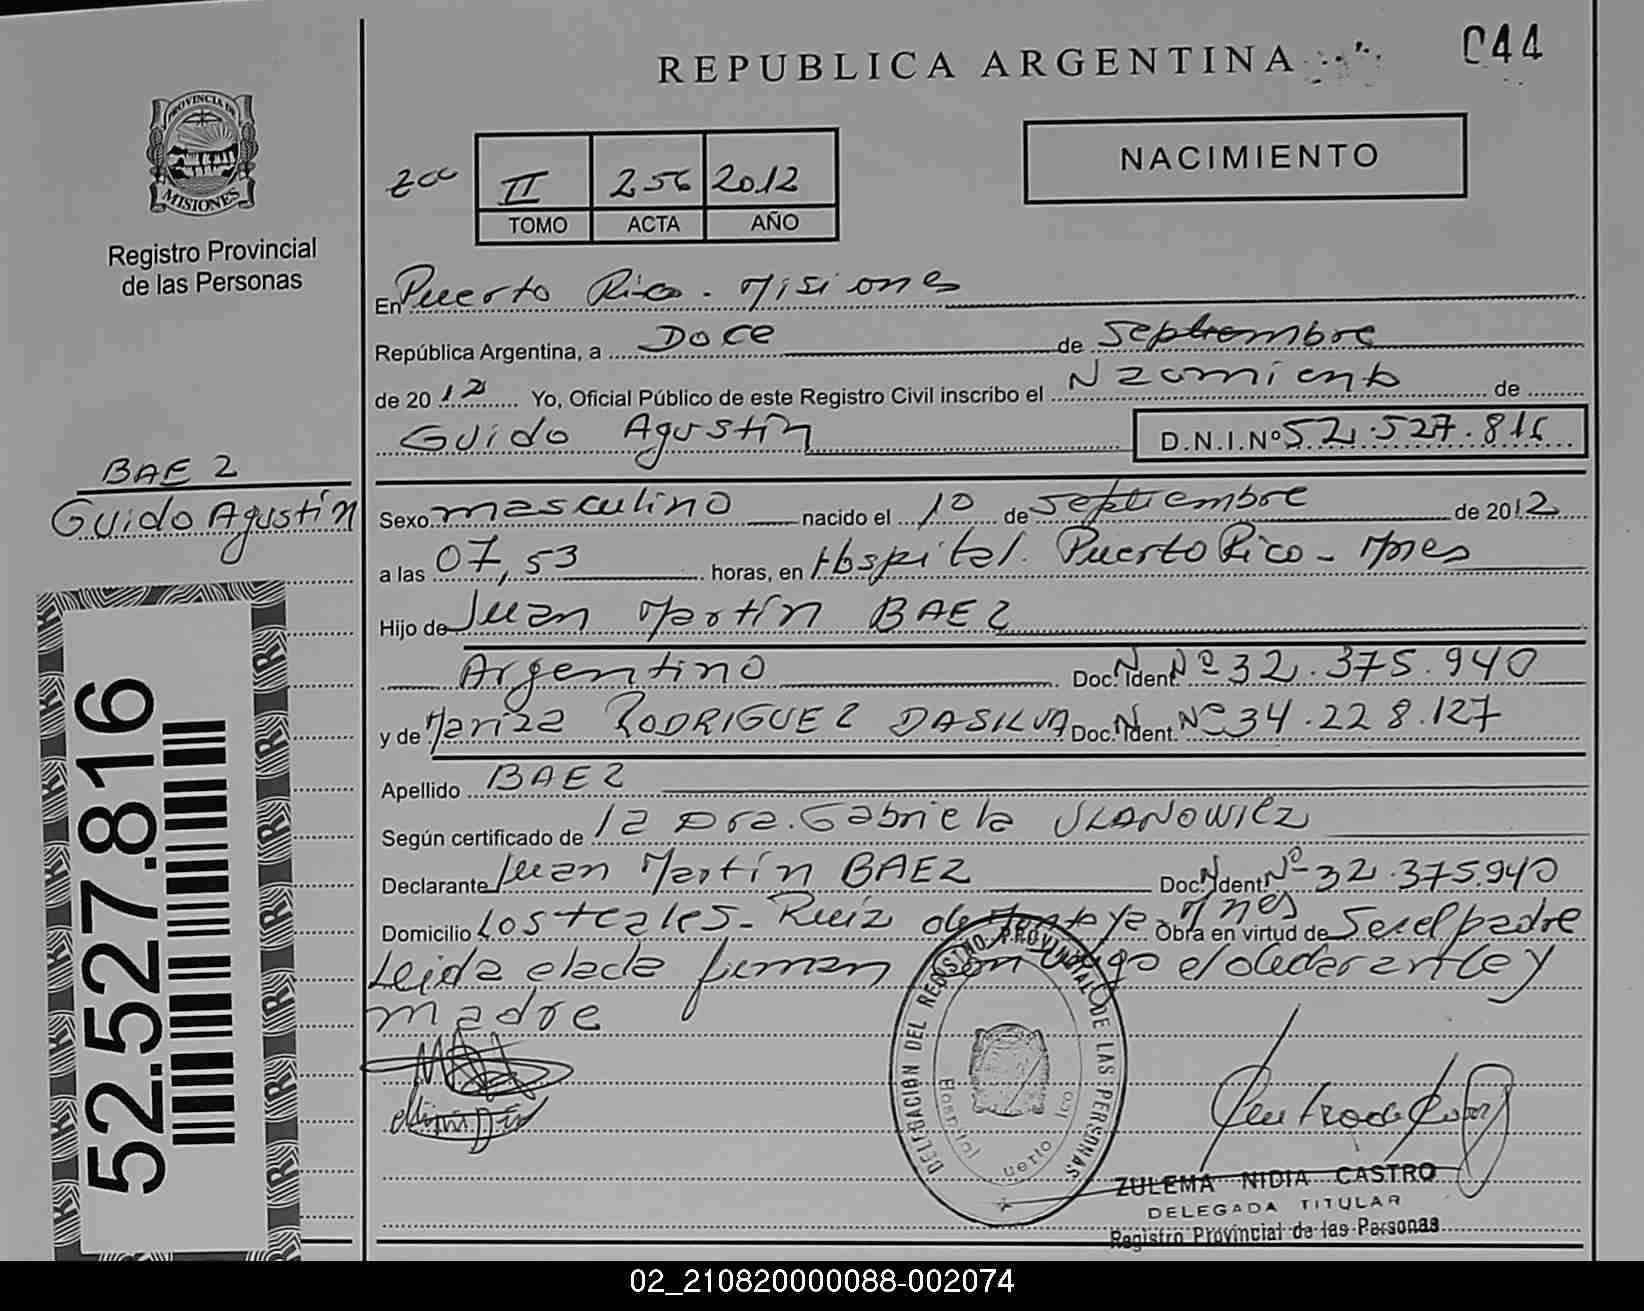 044
REPUBLICA ARGENTINA
PROVINCIA DE
MISIONES
Registro Provincial
de las Personas
NACIMIENTO
II 256 2012
TOMO ACTA AÑO
En Puerto Rico - Misiones
República Argentina, a Doce de Septiembre
de 2012 Yo, Oficial Público de este Registro Civil inscribo el Nacimiento de
Guido Agustín D.N.I.Nº 52.527.816
BAEZ
Guido Agustín
Sexo masculino nacido el 10 de Septiembre de 2012
a las 07,53 horas, en Hospital. Puerto Rico - Mnes
Hijo de Juan Martín BAEZ
Argentino Doc. Ident. Nº 32.375.940
y de Mariza RODRIGUEZ DASILVA Doc. Ident. Nº 34.228.127
Apellido BAEZ
Según certificado de la Dra. Gabriela ULANOWICZ
Declarante Juan Martín BAEZ Doc. Ident. Nº 32.375.940
Domicilio Los teales - Ruiz de Montoya - Mnes Obra en virtud de Ser el padre
Leida el acta firman con migo el declarante y
madre
52.527.816
DELEGACIÓN DEL REGISTRO PROVINCIAL DE LAS PERSONAS
Hospital
ZULEMA NIDIA CASTRO
DELEGADA TITULAR
Registro Provincial de las Personas
02_210820000088-002074